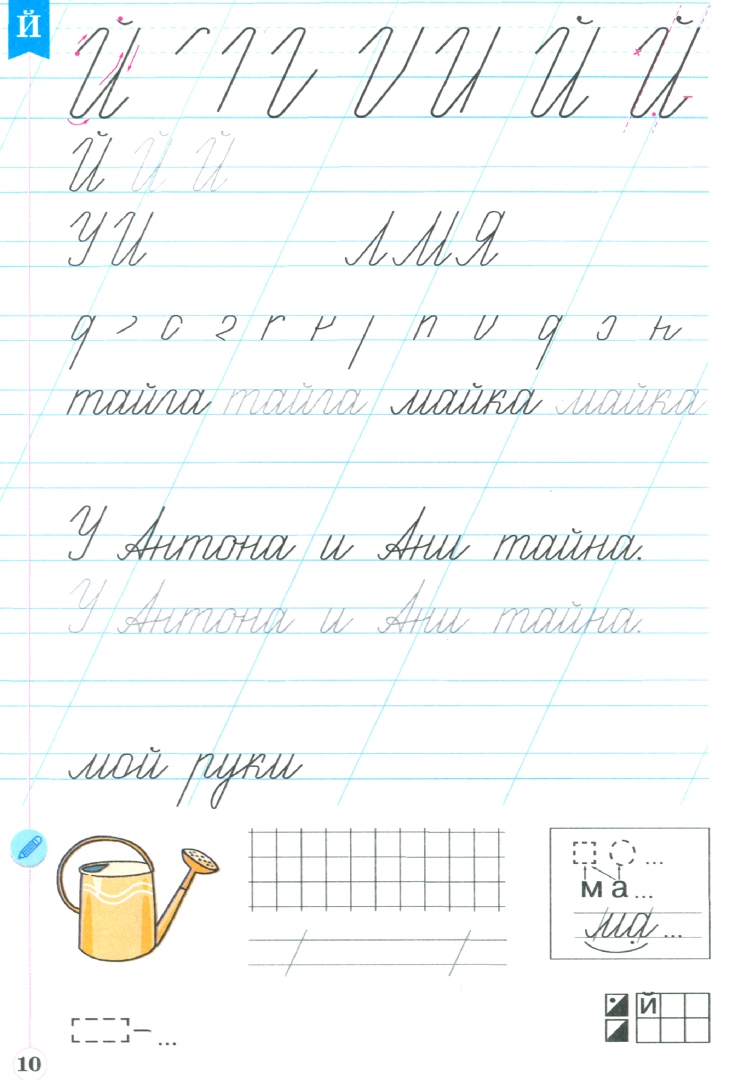 Й
Й И Й Й
Й Й Й
УИ ЛМЯ
тайга тайга майка майка
У Антона и Ани тайна.
У Антона и Ани тайна.
мой руки
...
ма...
ма...
Й
– ...
10